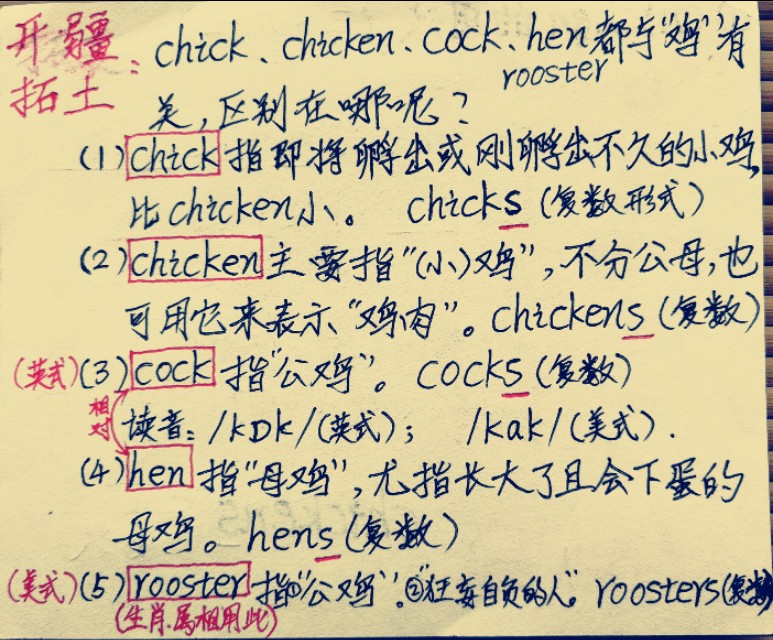 开疆拓土：chick、chicken、cock、hen都与“鸡”有
rooster
关，区别在哪呢？
(1) chick 指即将孵出或刚孵出不久的小鸡，
比chicken小。 chicks (复数形式)
(2) chicken 主要指“(小)鸡”，不分公母，也
可用它来表示“鸡肉”。chickens (复数)
(英式) (3) cock 指“公鸡”。 cocks (复数)
相对
读音：/kɒk/(英式)； /kak/(美式).
(4) hen 指“母鸡”，尤指长大了且会下蛋的
母鸡。hens (复数)
(美式) (5) rooster 指①“公鸡”.②“狂妄自负的人”。 roosters (复数)
(生肖.属相用此)